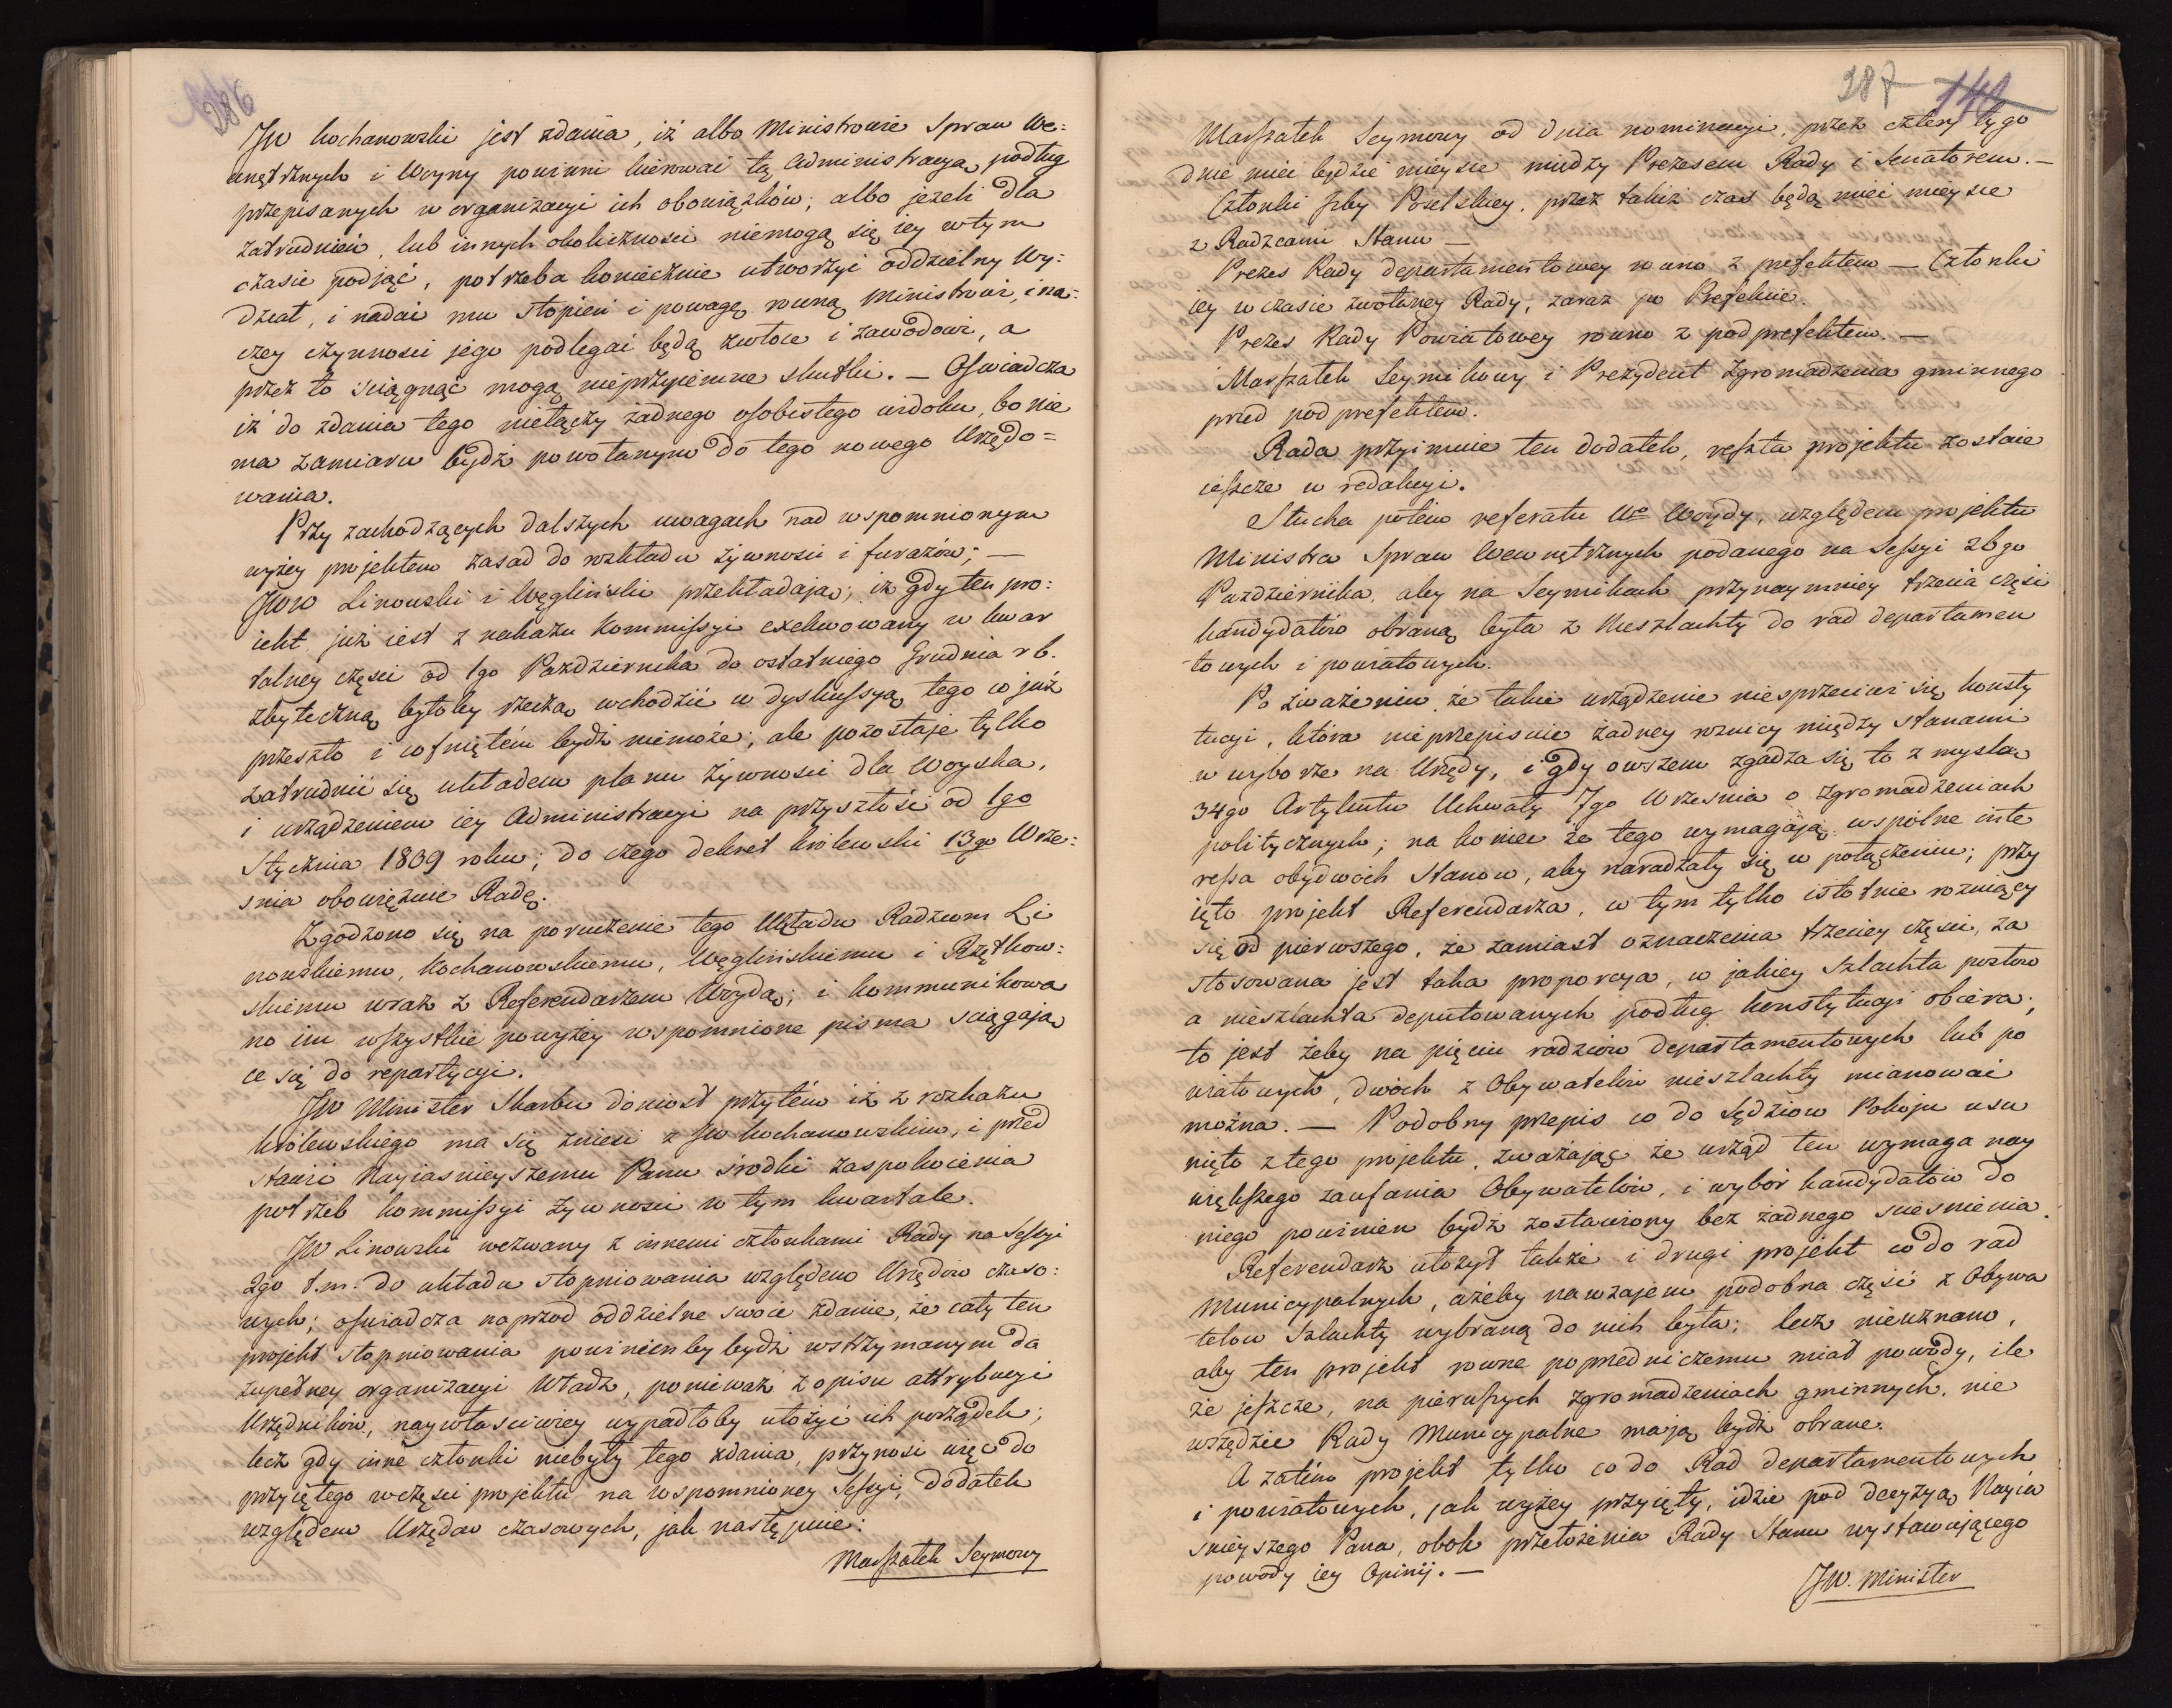 286
JW Kochanowski jest zdania, iż albo Ministrowie Spraw We=
wnętrznych i Woyny powinni kierować tą Administracyą podług
przepisanych w organizacyi ich obowiązków; albo jeżeli dla
zatrudnień, lub innych okoliczności niemogą się iey wtym
czasie podjąć, potrzeba koniecznie utworzyć oddzielny Wy=
dział, i nadać mu stopień i powagę rowną Ministrowi, ina=
czey czynności jego podlegać będą zwłoce i zawodowi, a
przez to sciągnąć mogą nieprzyiemne skutki. — Oświadcza
iż do zdania tego niełączy żadnego osobistego widoku, bo nie
ma zamiaru bydź powołanym do tego nowego Urzędo=
wania.
Przy zachodzących dalszych uwagach nad wspomnionym
wyżey projektem zasad do rozkładu żywnosci i furażów; —
JWW Linowski i Węgliński przekładają; iż gdy ten pro=
iekt już iest z nakazu Kommissyi exekwowany w kwar
talney części od 1go Pazdziernika do ostatniego Grudnia r b.
zbyteczną byłoby rzeczą wchodzić w dyskussyą tego co już
przeszło i cofniętém bydź niemoże; ale pozostaje tylko
zatrudnić się układem planu żywnosci dla Woyska,
i urządzeniem iey Administracyi na przyszłość od 1go
Stycznia 1809 roku; do czego dekret królewski 13go Wrze=
snia obowięzuie Radę.
Zgodzono się na poruczenie tego Układu Radzcom Li
nowskiemu, Kochanowskiemu, Węglińskiemu i Rzętkow=
skiemu wraz z Referendarzem Woydą; i kommunikowa
no im wszystkie powyżey wspomnione pisma sciągają
ce się do repartycyi.
JW Minister Skarbu doniosł przytém iż z rozkazu
królewskiego ma się znieść z JW Kochanowskim, i przed
stawić Nayiasnieyszemu Panu środki zaspokoienia
potrzeb Kommissyi Żywnosci w tym kwartale.
JW Linowski wezwany z innemi członkami Rady na Sessyi
2go t.m. do układu stopniowania względem Urzędow czaso=
wych; oświadcza naprzod oddzielne swoie zdanie, że cały ten
projekt stopniowania powinienby bydź wstrzymanym do
zupełney organizacyi Władz, ponieważ z opisu attrybucyi
Urzędników, naywłasciwiey wypadłoby ułożyć ich porządek;
lecz gdy inne członki niebyły tego zdania, przynosi więc do
przyiętego wczęsci projektu na wspomnioney Sessyi, dodatek
względem Urzędow czasowych, jak następuie:
Marszałek Seymowy
287 149
Marszałek Seymowy od dnia nominacyi, przez cztery tygo
dnie mieć będzie mieysce między Prezesem Rady i Senatorem. —
Członki Izby Poselskiey, przez takiż czas będą mieć mieysce
z Radzcami Stanu —
Prezes Rady departamentowey rowno z prefektem — Członki
iey w czasie zwołaney Rady, zaraz po Prefekcie.
Prezes Rady Powiatowey rowno z podprefektem. —
Marszałek Seymikowy i Prezydent Zgromadzenia gminnego
przed podprefektem.
Rada przyimuie ten dodatek, reszta projektu zostaie
ieszcze w redakcyi.
Słucha potém referatu We Woydy, względem projektu
Ministra Spraw Wewnętrznych podanego na Sessyi 26go
Pazdziernika, aby na Seymikach przynaymniey trzecia część
kandydatów obraną była z Nieszlachty do rad departamen
towych i powiatowych.
Po zważeniu, że takie urządzenie niesprzeciwi się konsty
tucyi, która nieprzepisuie żadney roznicy między stanami
w wyborze na Urzędy, i gdy owszem zgadza się to z myslą
34go Artykułu Uchwały 7go Wrzesnia o zgromadzeniach
politycznych; na koniec że tego wymagają wspólne inte
ressa obydwóch Stanow, aby naradzały się w połączeniu; przy
ięto projekt Referendarza, w tym tylko istotnie rozniący
się od pierwszego, że zamiast oznaczenia trzeciey części, za
stosowana jest taka proporcya, w jakiey Szlachta posłów
a nieszlachta deputowanych podług konstytucyi obiera;
to jest żeby na pięciu radzców departamentowych lub po
wiatowych, dwóch z Obywatelów nieszlachty mianować
można. — Podobny przepis co do Sędziow Pokoju usu
nięto z tego projektu, zważając że urząd ten wymaga nay
większego zaufania Obywatelów, i wybór kandydatów do
niego powinien bydź zostawiony bez żadnego scieśnienia.
Referendarz ułożył także i drugi projekt co do rad
Municypalnych, ażeby nawzajem podobna część z Obywa
telow Szlachty wybraną do nich była; lecz nieuznano,
aby ten projekt rowne poprzedniczemu miał powody, ile
że jeszcze, na pierwszych zgromadzeniach gminnych, nie
wszędzie Rady Municypalne mają bydź obrane.
A zatém projekt tylko co do Rad departamentowych
i powiatowych, jak wyżey przyięty, idzie pod decyzyą Nayia
snieyszego Pana, obok przełożenia Rady Stanu wystawującego
powody iey Opinij. —
JW. Minister